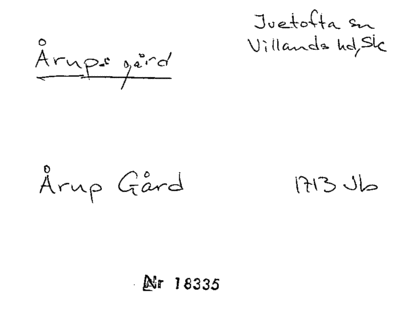 Årups gård
Ivetofta sn
Villands hd, Sk
Årup Gård 1713 Jb
Nr 18335